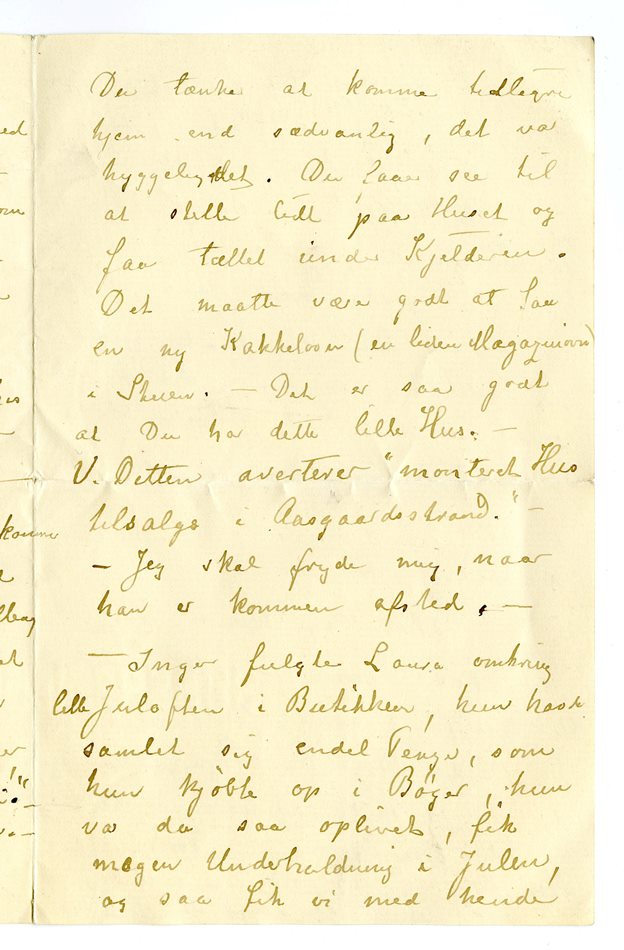 Du tænker at komme tidligere
hjem end sædvanlig, det var
hyggeligt det. Du faar see til
at stelle lidt paa Huset og
faa tættet under Kjelderen.
Det maatte være godt at faa
en ny Kakkelovn (en liden Magazinovn)
i Stuen. — Det er saa godt
at Du har dette lille Hus. —
V. Ditten averterer "monteret Hus
tilsalgs i Aasgaardsstrand." —
— Jeg skal fryde mig, naar
han er kommen afsted. —
— Inger fulgte Laura omkring
lille Juleaften i Butikken, hun havde
samlet sig endel Penge, som
hun kjöbte op i Bøger, hun
va da saa oplivet, fik
megen Underholdning i Julen,
og saa fik vi med hende
ed
om
komme
et
er